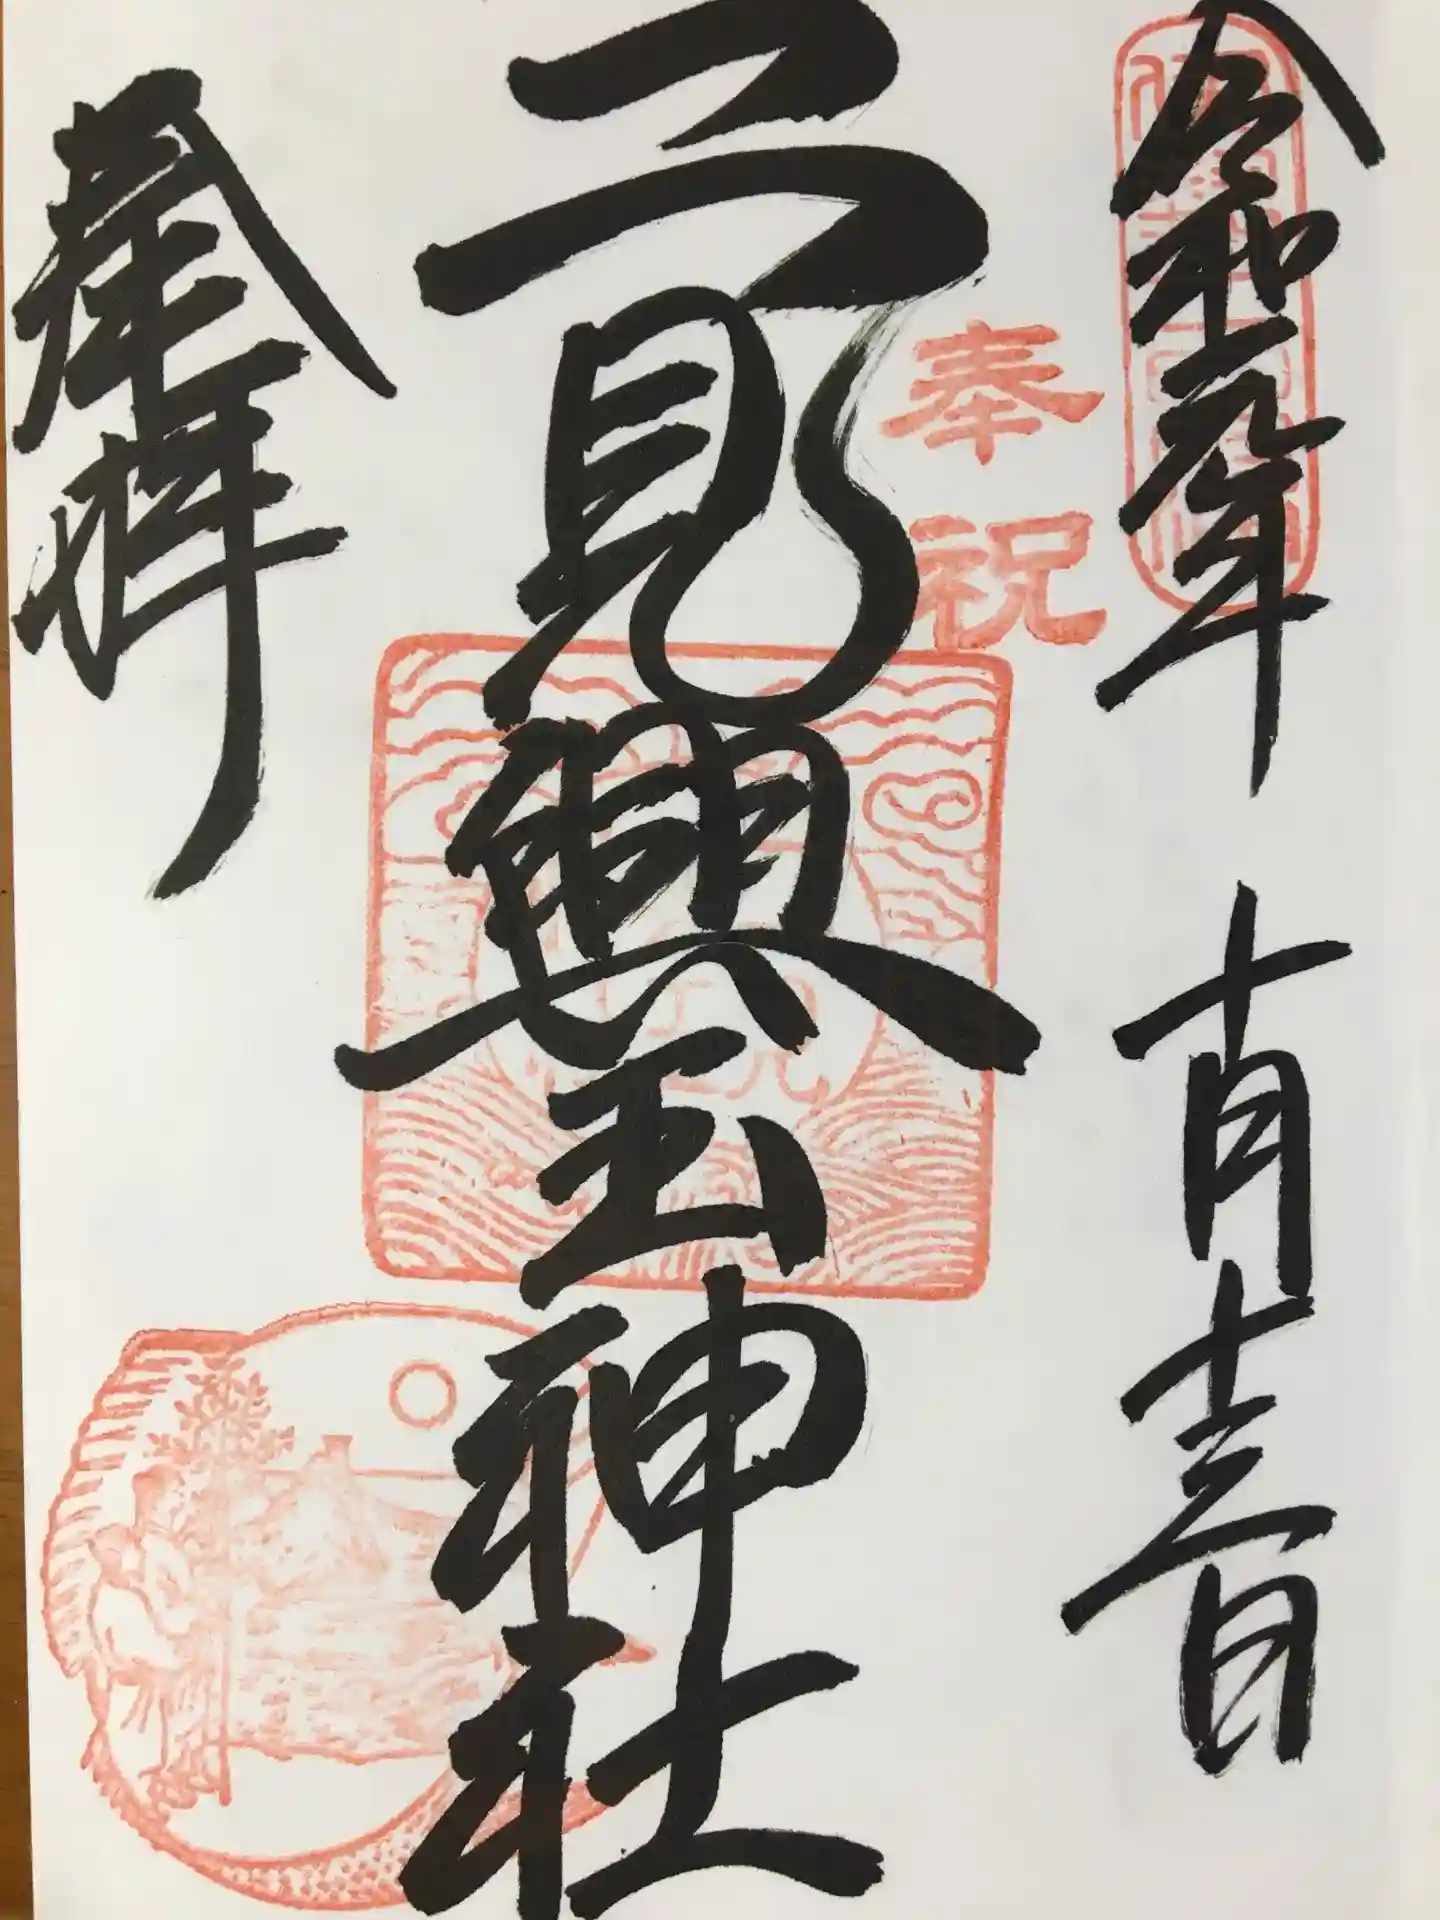 令和元年 十月十三日
奉祝
二見興玉神社
奉拝